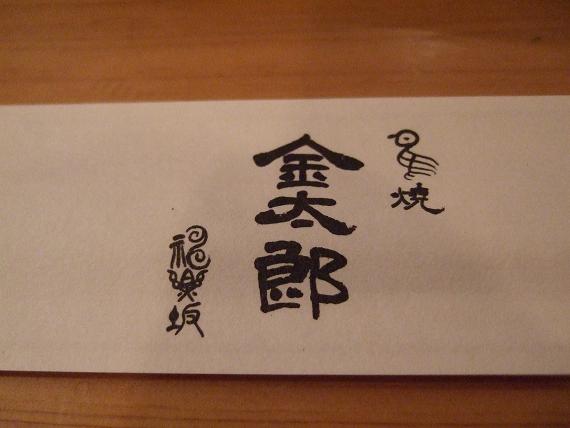 鳥焼
金太郎
神楽坂